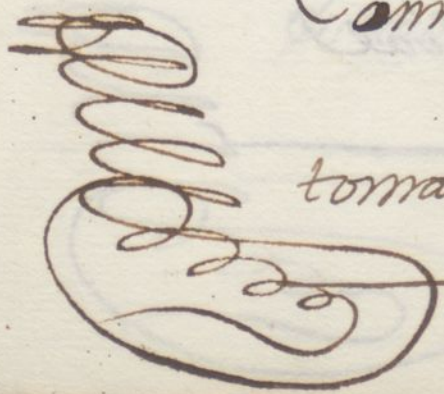 Com
toma